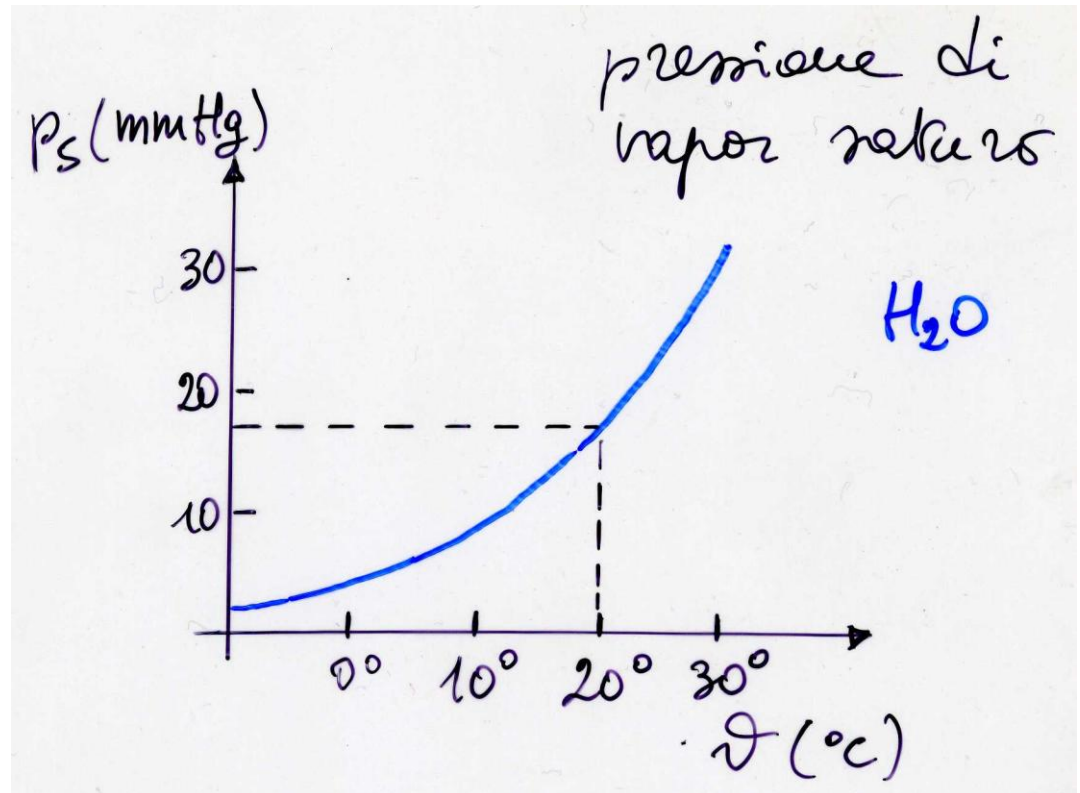 pressione di
vapor saturo
ps (mmHg)
30
H₂O
20
10
0° 10° 20° 30°
ϑ (°C)